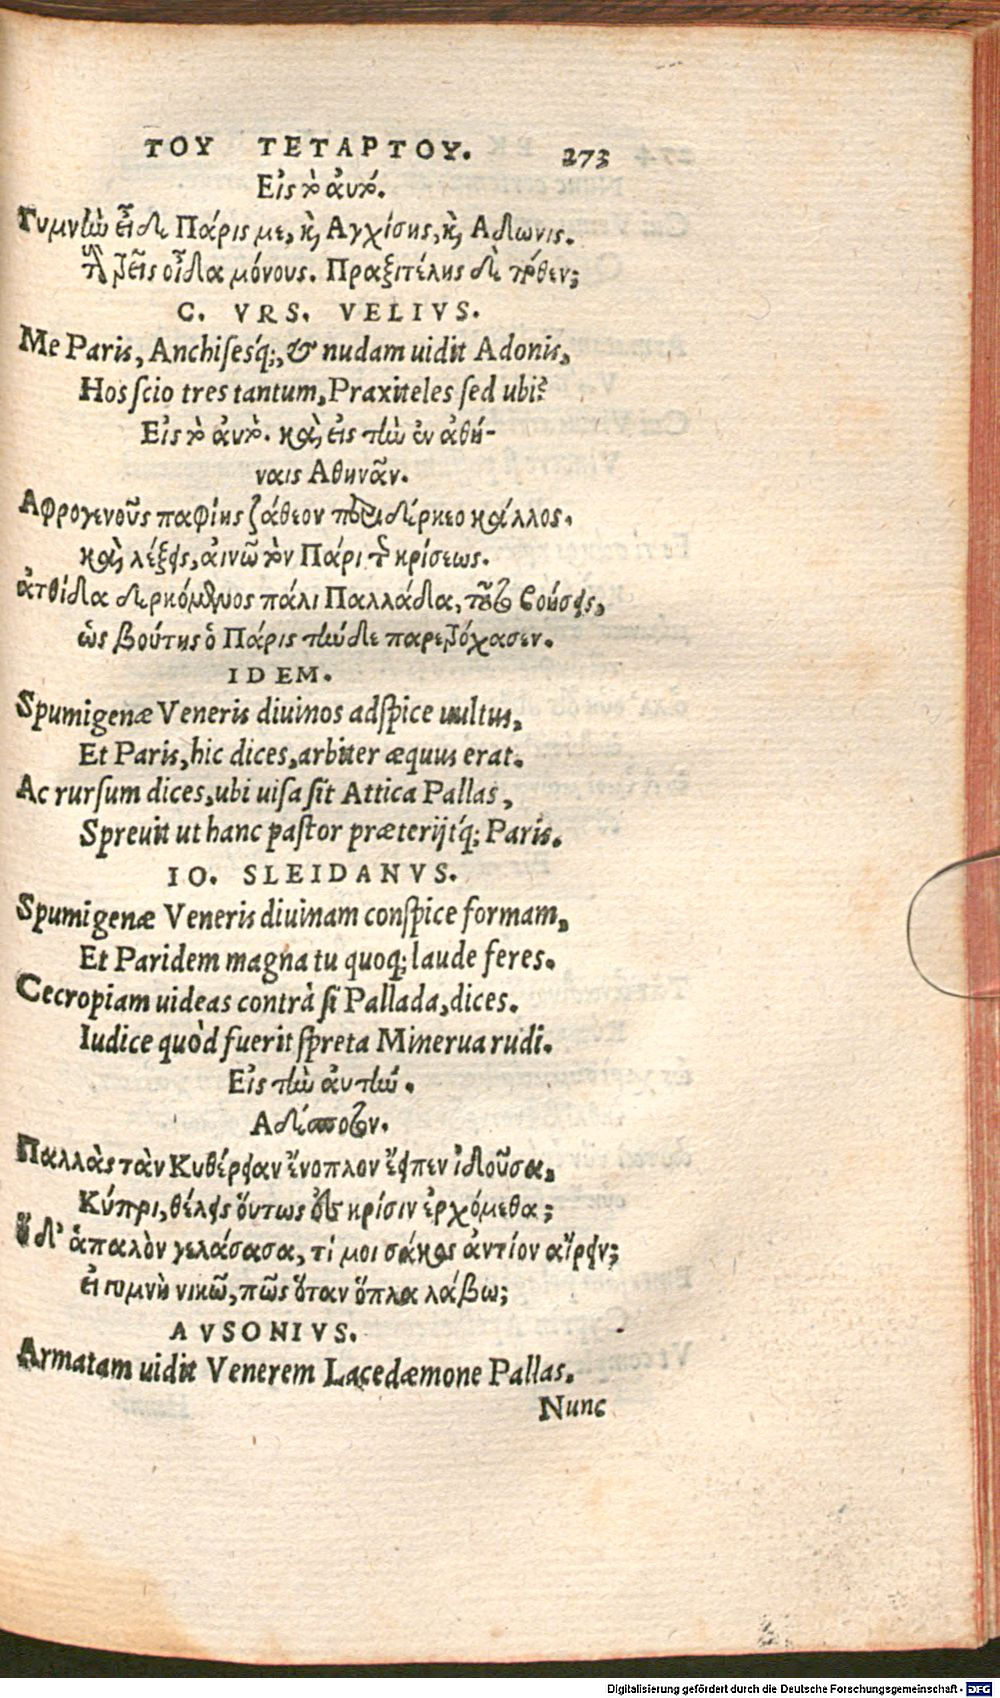 ΤΟΥ ΤΕΤΑΡΤΟΥ. 273
Εἰς τὸ ἀυτό.
Γυμνὼ εἶδε Πάρις με, κỳ Αγχίσης, κỳ Αδωνις.
Τοὺς τρεῖς οἶδα μόνους. Πραξιτέλης δὲ πόθεν;
C. VRS. VELIVS.
Me Paris, Anchisesq́;, & nudam uidit Adonis,
Hos scio tres tantum, Praxiteles sed ubi?
Εἰς τὸ ἀυτὸ. καὶ εἰς τὼ ἐν ἀθή-
ναις Αθηνᾶν.
Αφρογενοῦς παφίης ζάθεον περιδέρκεο κάλλος.
καὶ λέξεις, αἰνῶ τὸν Πάριν τῆς κρίσεως.
ἀτθίδα δερκόμενος πάλι Παλλάδα, τοῦτο βοήσεις,
ὡς βούτης ὁ Πάρις τὼδε παρετρόχασεν.
IDEM.
Spumigenæ Veneris diuinos adspice uultus,
Et Paris, hic dices, arbiter æquus erat.
Ac rursum dices, ubi uisa sit Attica Pallas,
Spreuit ut hanc pastor præterijtq́; Paris.
IO. SLEIDANVS.
Spumigenæ Veneris diuinam conspice formam,
Et Paridem magna tu quoq; laude feres.
Cecropiam uideas contrà si Pallada, dices.
Iudice quòd fuerit spreta Minerua rudi.
Εἰς τὼ ἀυτὼ.
Αδέσποτον.
Παλλὰς τὰν Κυθέρειαν ἔνοπλον ἔειπεν ἰδοῦσα,
Κύπρι, θέλεις ὅυτως ἐς κρίσιν ἐρχόμεθα;
ἥ δ' ἁπαλὸν γελάσασα, τί μοι σάκος ἀντίον αἴρειν;
εἰ γυμνὴ νικῶ, πῶς ὅταν ὅπλα λάβω;
AVSONIVS.
Armatam uidit Venerem Lacedæmone Pallas.
Nunc
Digitalisierung gefördert durch die Deutsche Forschungsgemeinschaft - DFG